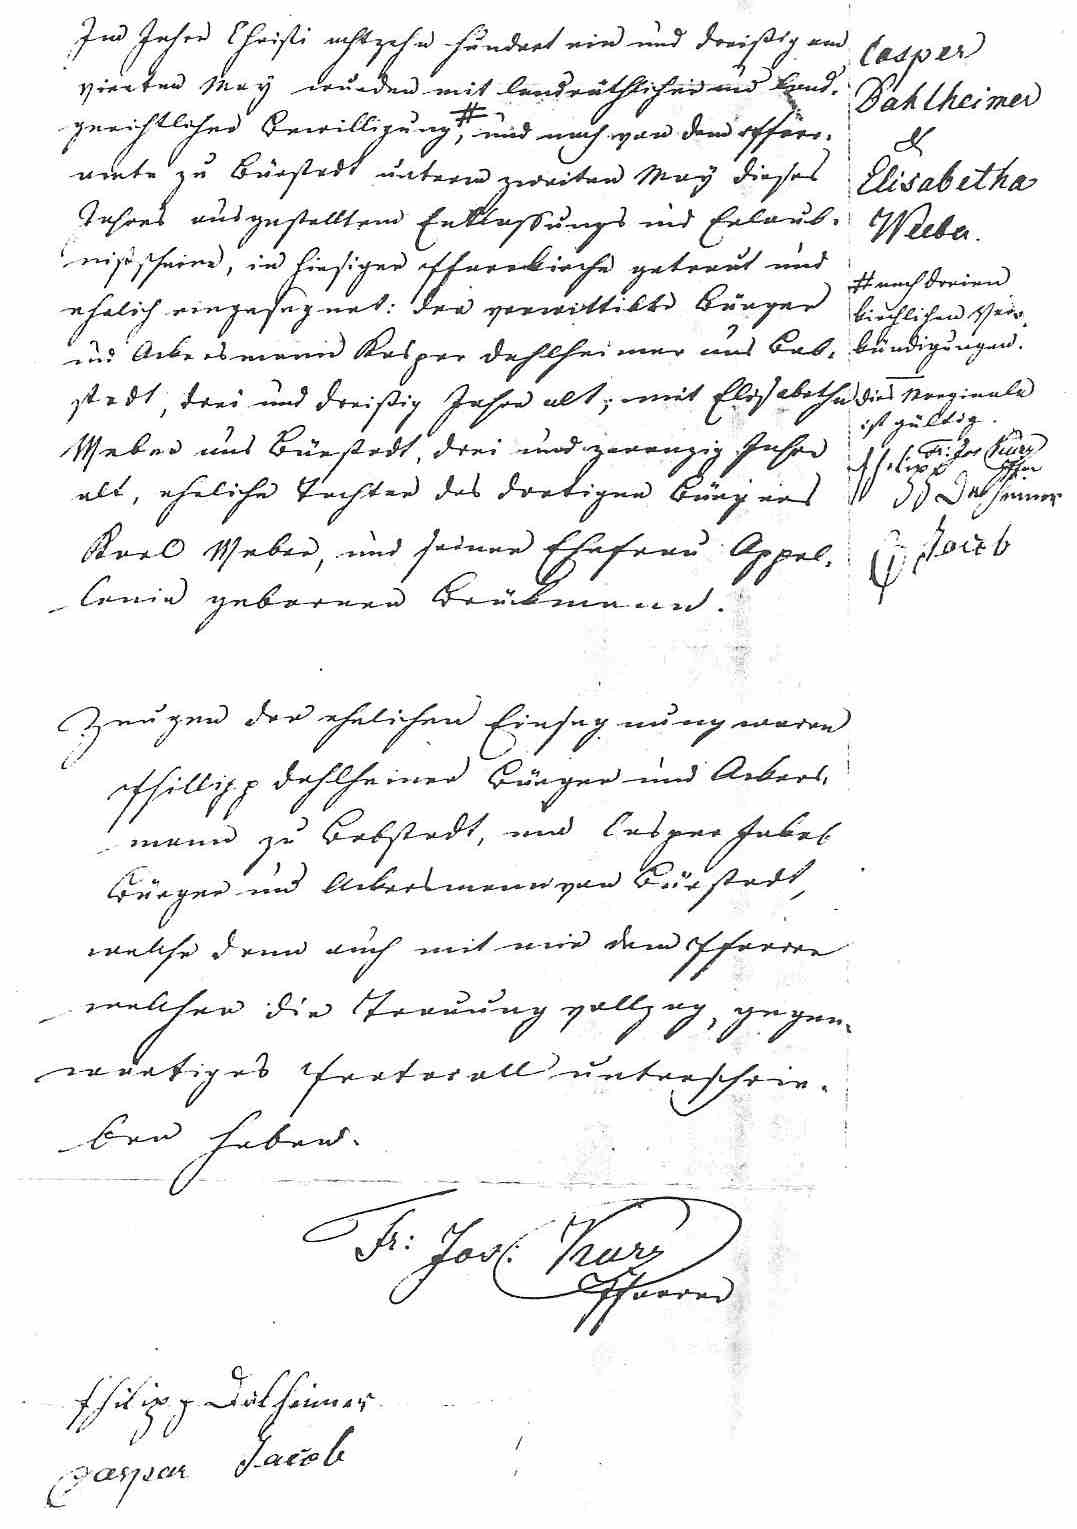 Im Jahre Christi achtzehn hundert ein und dreißig am
vierten May wurden mit landräthlicher und land-
gerichtlicher Bewilligung, # und nach von dem Pfarr-
amte zu Bürstadt unterm zweiten May dieses
Jahres ausgestelltem Entlassungs und Erlaub-
nißscheine, in hiesiger Pfarrkirche getraut und
ehelich eingesegnet: der verwittibte Bürger
und Ackersmann Kasper Dahlheimer aus Bob-
stadt, drei und dreißig Jahre alt; mit Elisabetha
Weber aus Bürstadt, drei und zwanzig Jahre
alt, eheliche Tochter des dortigen Bürgers
Karl Weber, und seiner Ehefrau Appol-
lonia gebornen Brückmann.
Zeugen der ehelichen Einsegnung waren
Phillipp Dahlheimer Bürger und Ackers-
mann zu Bobstadt, und Casper Jakob
Bürger und Ackersmann von Bürstadt,
welche dann auch mit mir dem Pfarrer
welcher die Trauung vollzog, gegen-
wärtiges Protocoll unterschrie-
ben haben.
Fr: Jos: Kurz
Pfarrer
Philipp Dalheimer
Caspar Jacob
Casper
Dahlheimer
&
Elisabetha
Weber.
# nach dreien
kirchlichen Ver-
kündigungen.
dies Marginale
ist gültig.
Fr: Jos Kurz
Pfr
Philipp
Dalheimer
C Jacob